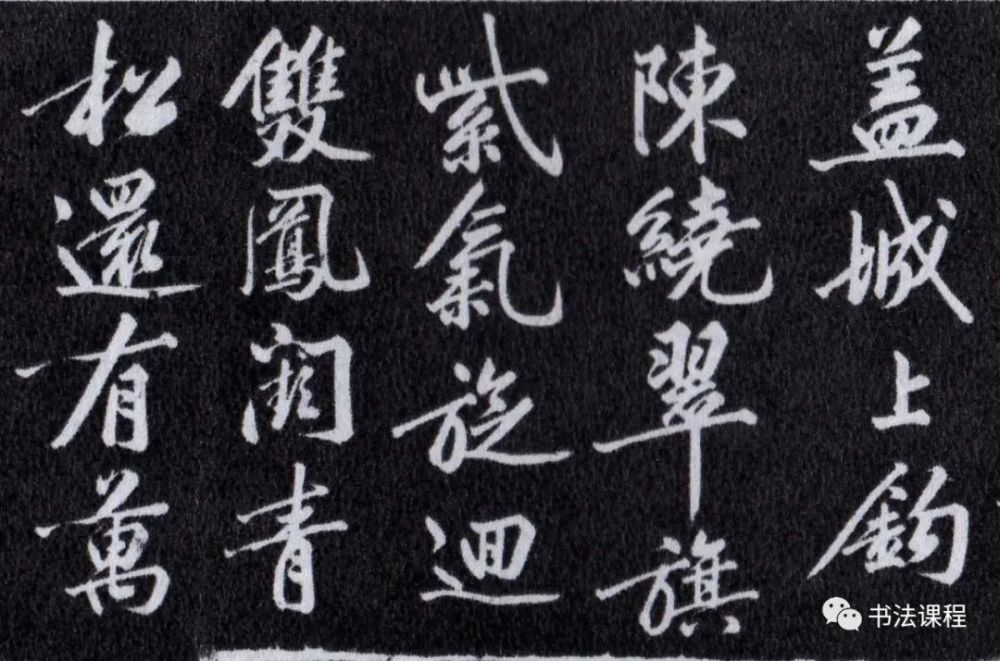 盖城上鈎
陳繞翠旗
紫氣旋迴
雙鳳闕青
松還有萬
书法课程